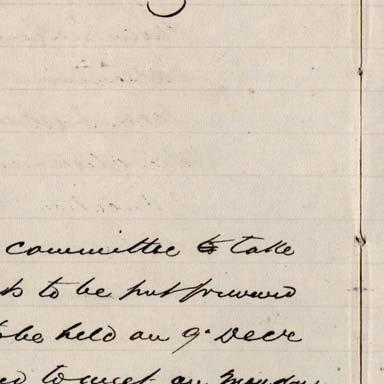 committee to take
to be put forward
be held on 9th Decr
to meet on Monday